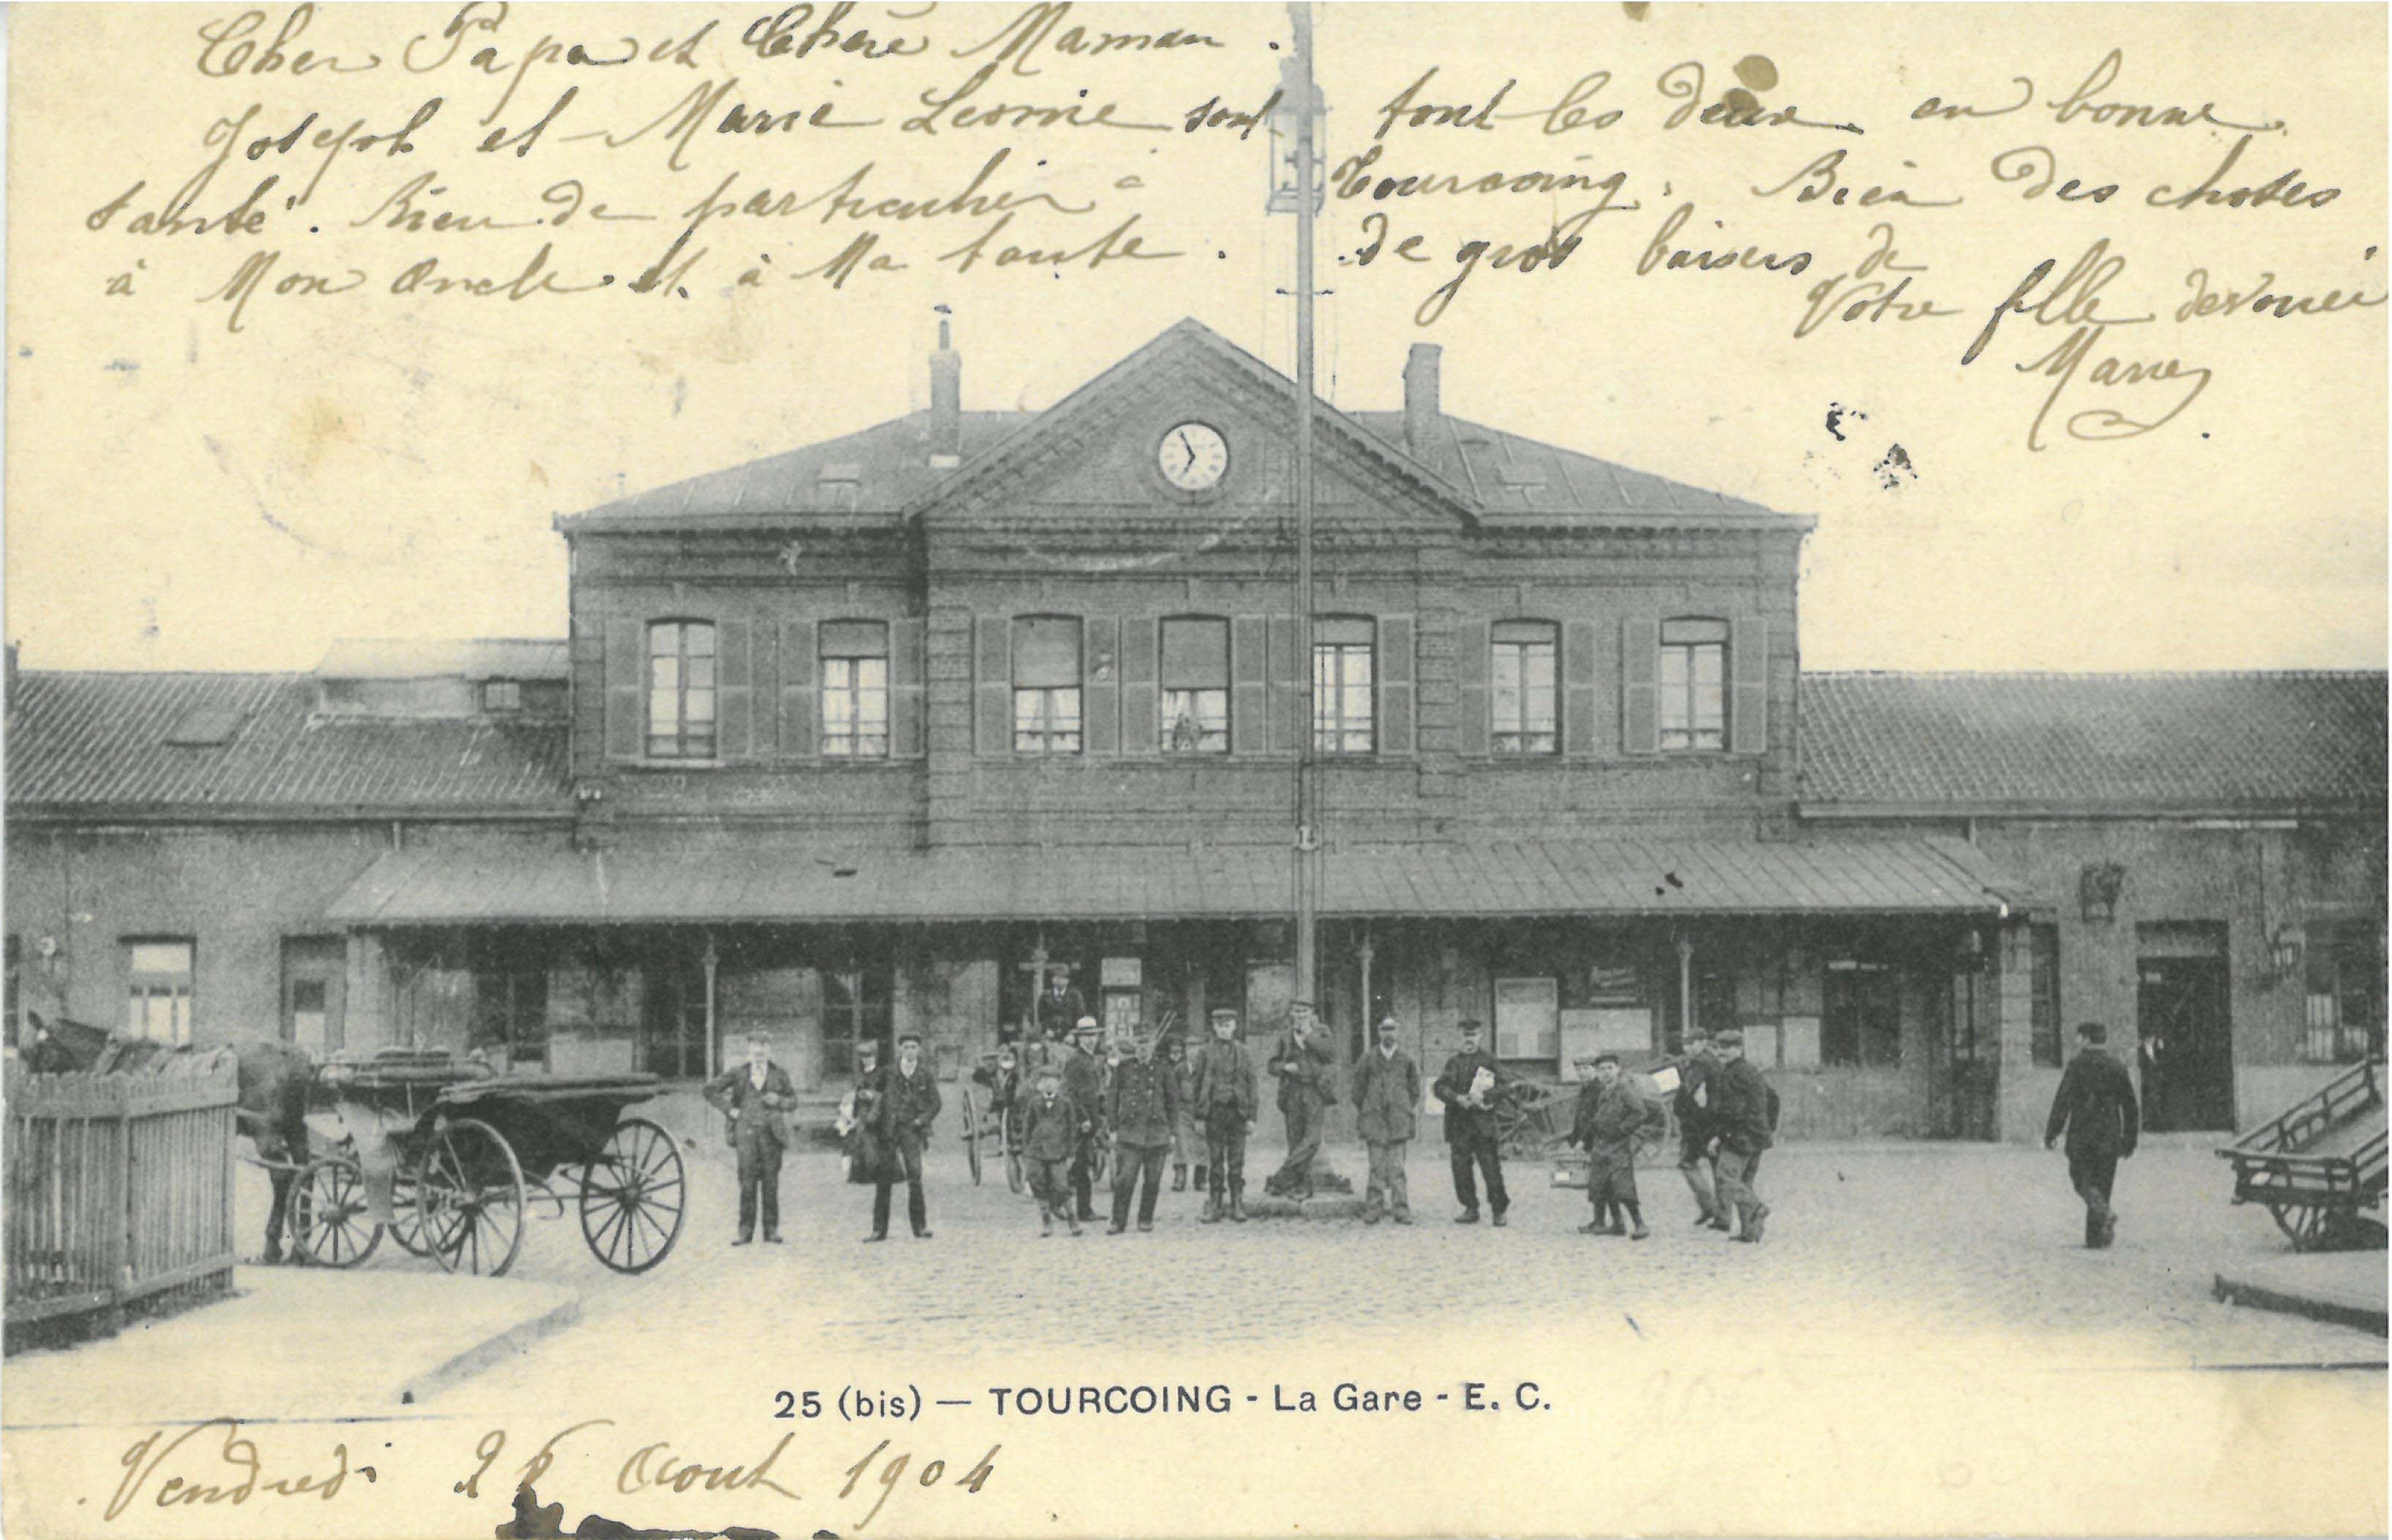 Cher Papa et Chère Maman.
Joseph et Marie Leonie sont tout les deux en bonne
santé. Rien de particulier à Tourcoing. Bien des choses
à Mon Oncle et à Ma tante. de gros baisers de
Votre fille devouée
Marie
25 (bis) — TOURCOING - La Gare - E. C.
Vendredi Aout 1904